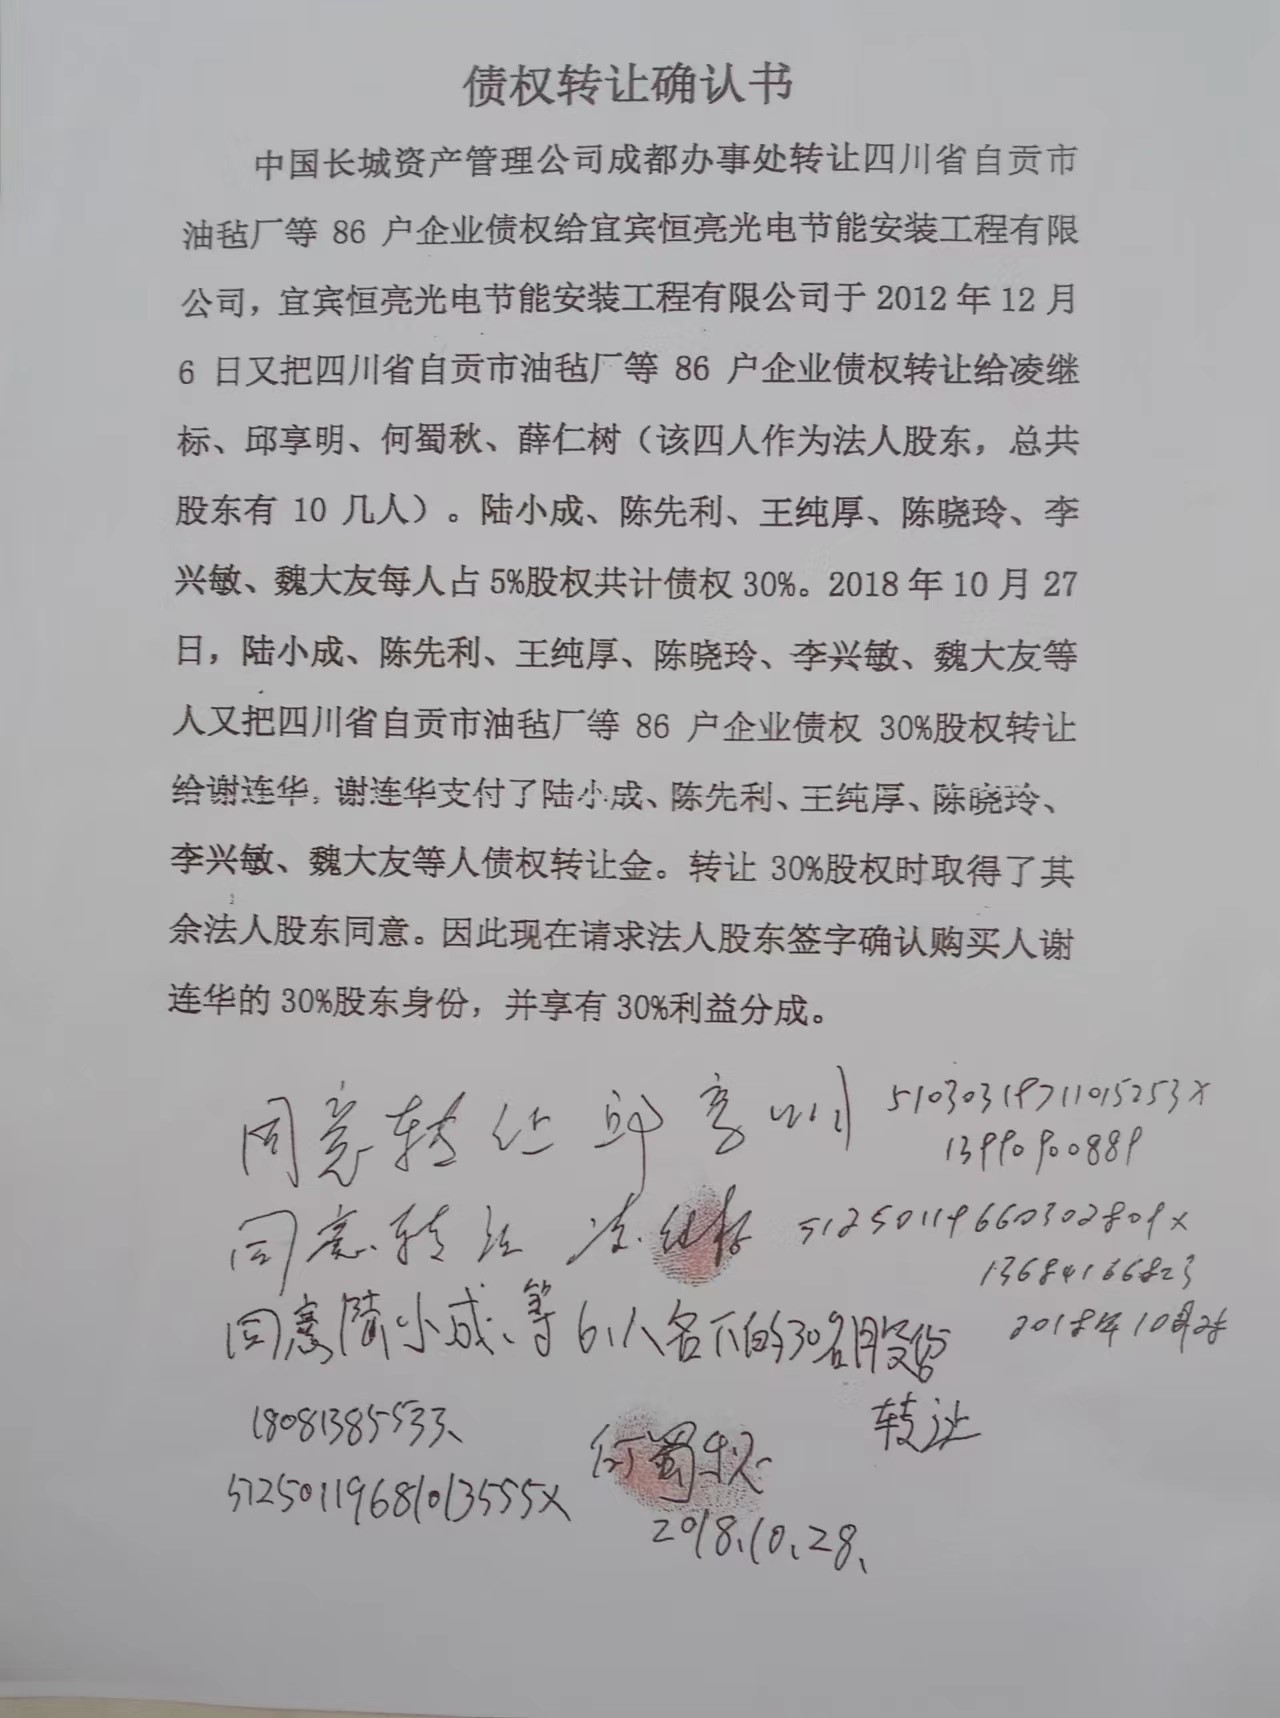 债权转让确认书
中国长城资产管理公司成都办事处转让四川省自贡市
油毡厂等 86 户企业债权给宜宾恒亮光电节能安装工程有限
公司，宜宾恒亮光电节能安装工程有限公司于 2012 年 12 月
6 日又把四川省自贡市油毡厂等 86 户企业债权转让给凌继
标、邱享明、何蜀秋、薛仁树（该四人作为法人股东，总共
股东有 10 几人）。陆小成、陈先利、王纯厚、陈晓玲、李
兴敏、魏大友每人占 5%股权共计债权 30%。2018 年 10 月 27
日，陆小成、陈先利、王纯厚、陈晓玲、李兴敏、魏大友等
人又把四川省自贡市油毡厂等 86 户企业债权 30%股权转让
给谢连华，谢连华支付了陆小成、陈先利、王纯厚、陈晓玲、
李兴敏、魏大友等人债权转让金。转让 30%股权时取得了其
余法人股东同意。因此现在请求法人股东签字确认购买人谢
连华的 30%股东身份，并享有 30%利益分成。
同意转让 邱享明 51030319711015253X
13990900889
同意转让 凌继标 51250119660302809X
13684166823
同意陆小成、等6人名下的30%股份 2018年10月28
转让
18081385533、
51250119681013555X 何蜀秋
2018、10、28、